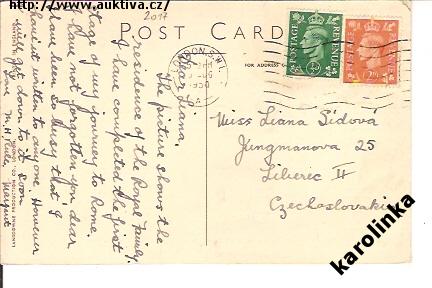 http://www.auktiva.cz
2017
POST CARD
FOR ADDRESS
LONDON. S.W.1.
1950
POSTAGE
REVENUE
POSTAGE
REVENUE
Dear Liana,
The picture shows the
residence of the Royal Family.
I have completed the first
stage of my journey to Rome.
I have not forgotten you dear
I have been so busy that I
haven't written to anyone. However
will get down to it soon.
Margaret
Miss Liana Sídová
Jungmanova 25
Liberec II
Czechoslovakia
LANSDOWNE PRODUCTION CO., LONDON
karolinka